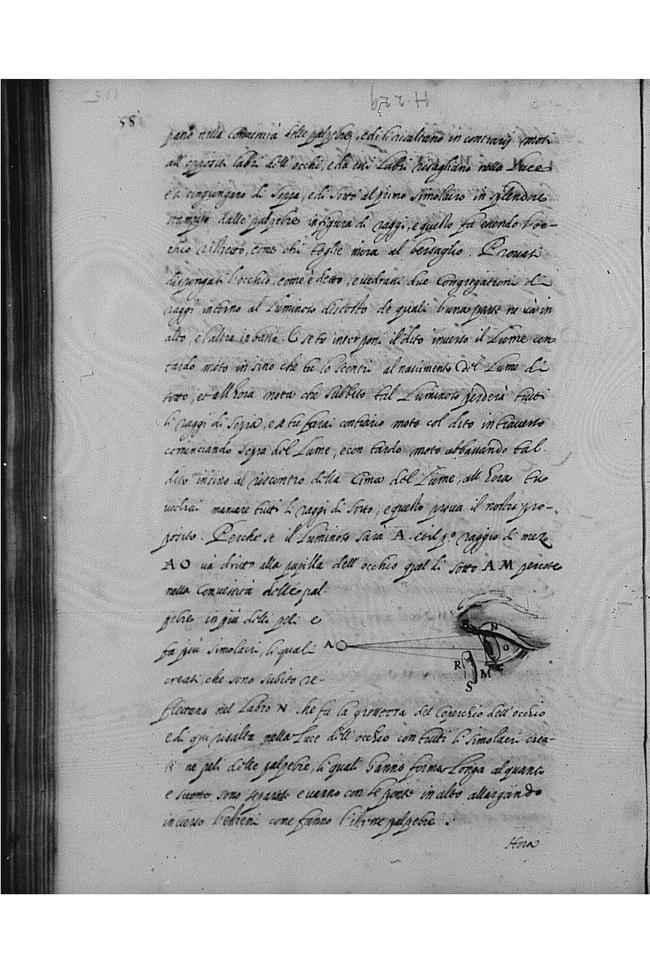 H. 229
58
nella delle palpebre, e di lì risaltano in contrarij moti
all' oppositi labri dell' occhi, e da essi labri risagliano nella Luce
e si congiungano di sopra, e di sotto al primo simolacro in splendore
dalle palpebre in figura di raggi, e questo fa essendo l'oc-
chio ristretto, come chi toglie mira al bersaglio. Provasi
l'occhio, come è detto, e vedrai due Congregationi di
raggi intorno al Luminoso de quali l'una parte ne và in
alto, e l'altra in basso. E se tu interponi il dito inverso il Lume con
tardo moto insino che tu lo scontri al nascimento del Lume di
sotto, et all' hora nota che subbito tal Luminoso perderà tutti
li raggi di sopra, e se tu farai contrario moto col dito in traverso
cominciando sopra del Lume, e con tardo moto abbassando tal
dito insino al riscontro della Cima del Lume, all' hora tu
vedrai mancare tutti li raggi di sotto, e questo prova il nostro pro-
posito. Perche se il Luminoso sarà A. et il p.º raggio di mezo
AO và dritto alla pupilla dell' occhio quel di sotto AM percote
nella Convessità delle pal-
pebre in più delli peli e
fa più simolacri, li quali
creati, che sono subito re-
flettano nel Labro N che fa la grossezza del Coperchio dell' occhio
e di qui risalta nella Luce dell' occhio con tutti li simolacri crea-
ti ne peli delle palpebre, li quali hanno forma Longa alquanto
e sono separati e vanno con le ponte in alto allargando
inverso l'estremi come fanno li peli delle palpebre.
A
N
O
R
M
S
Hora